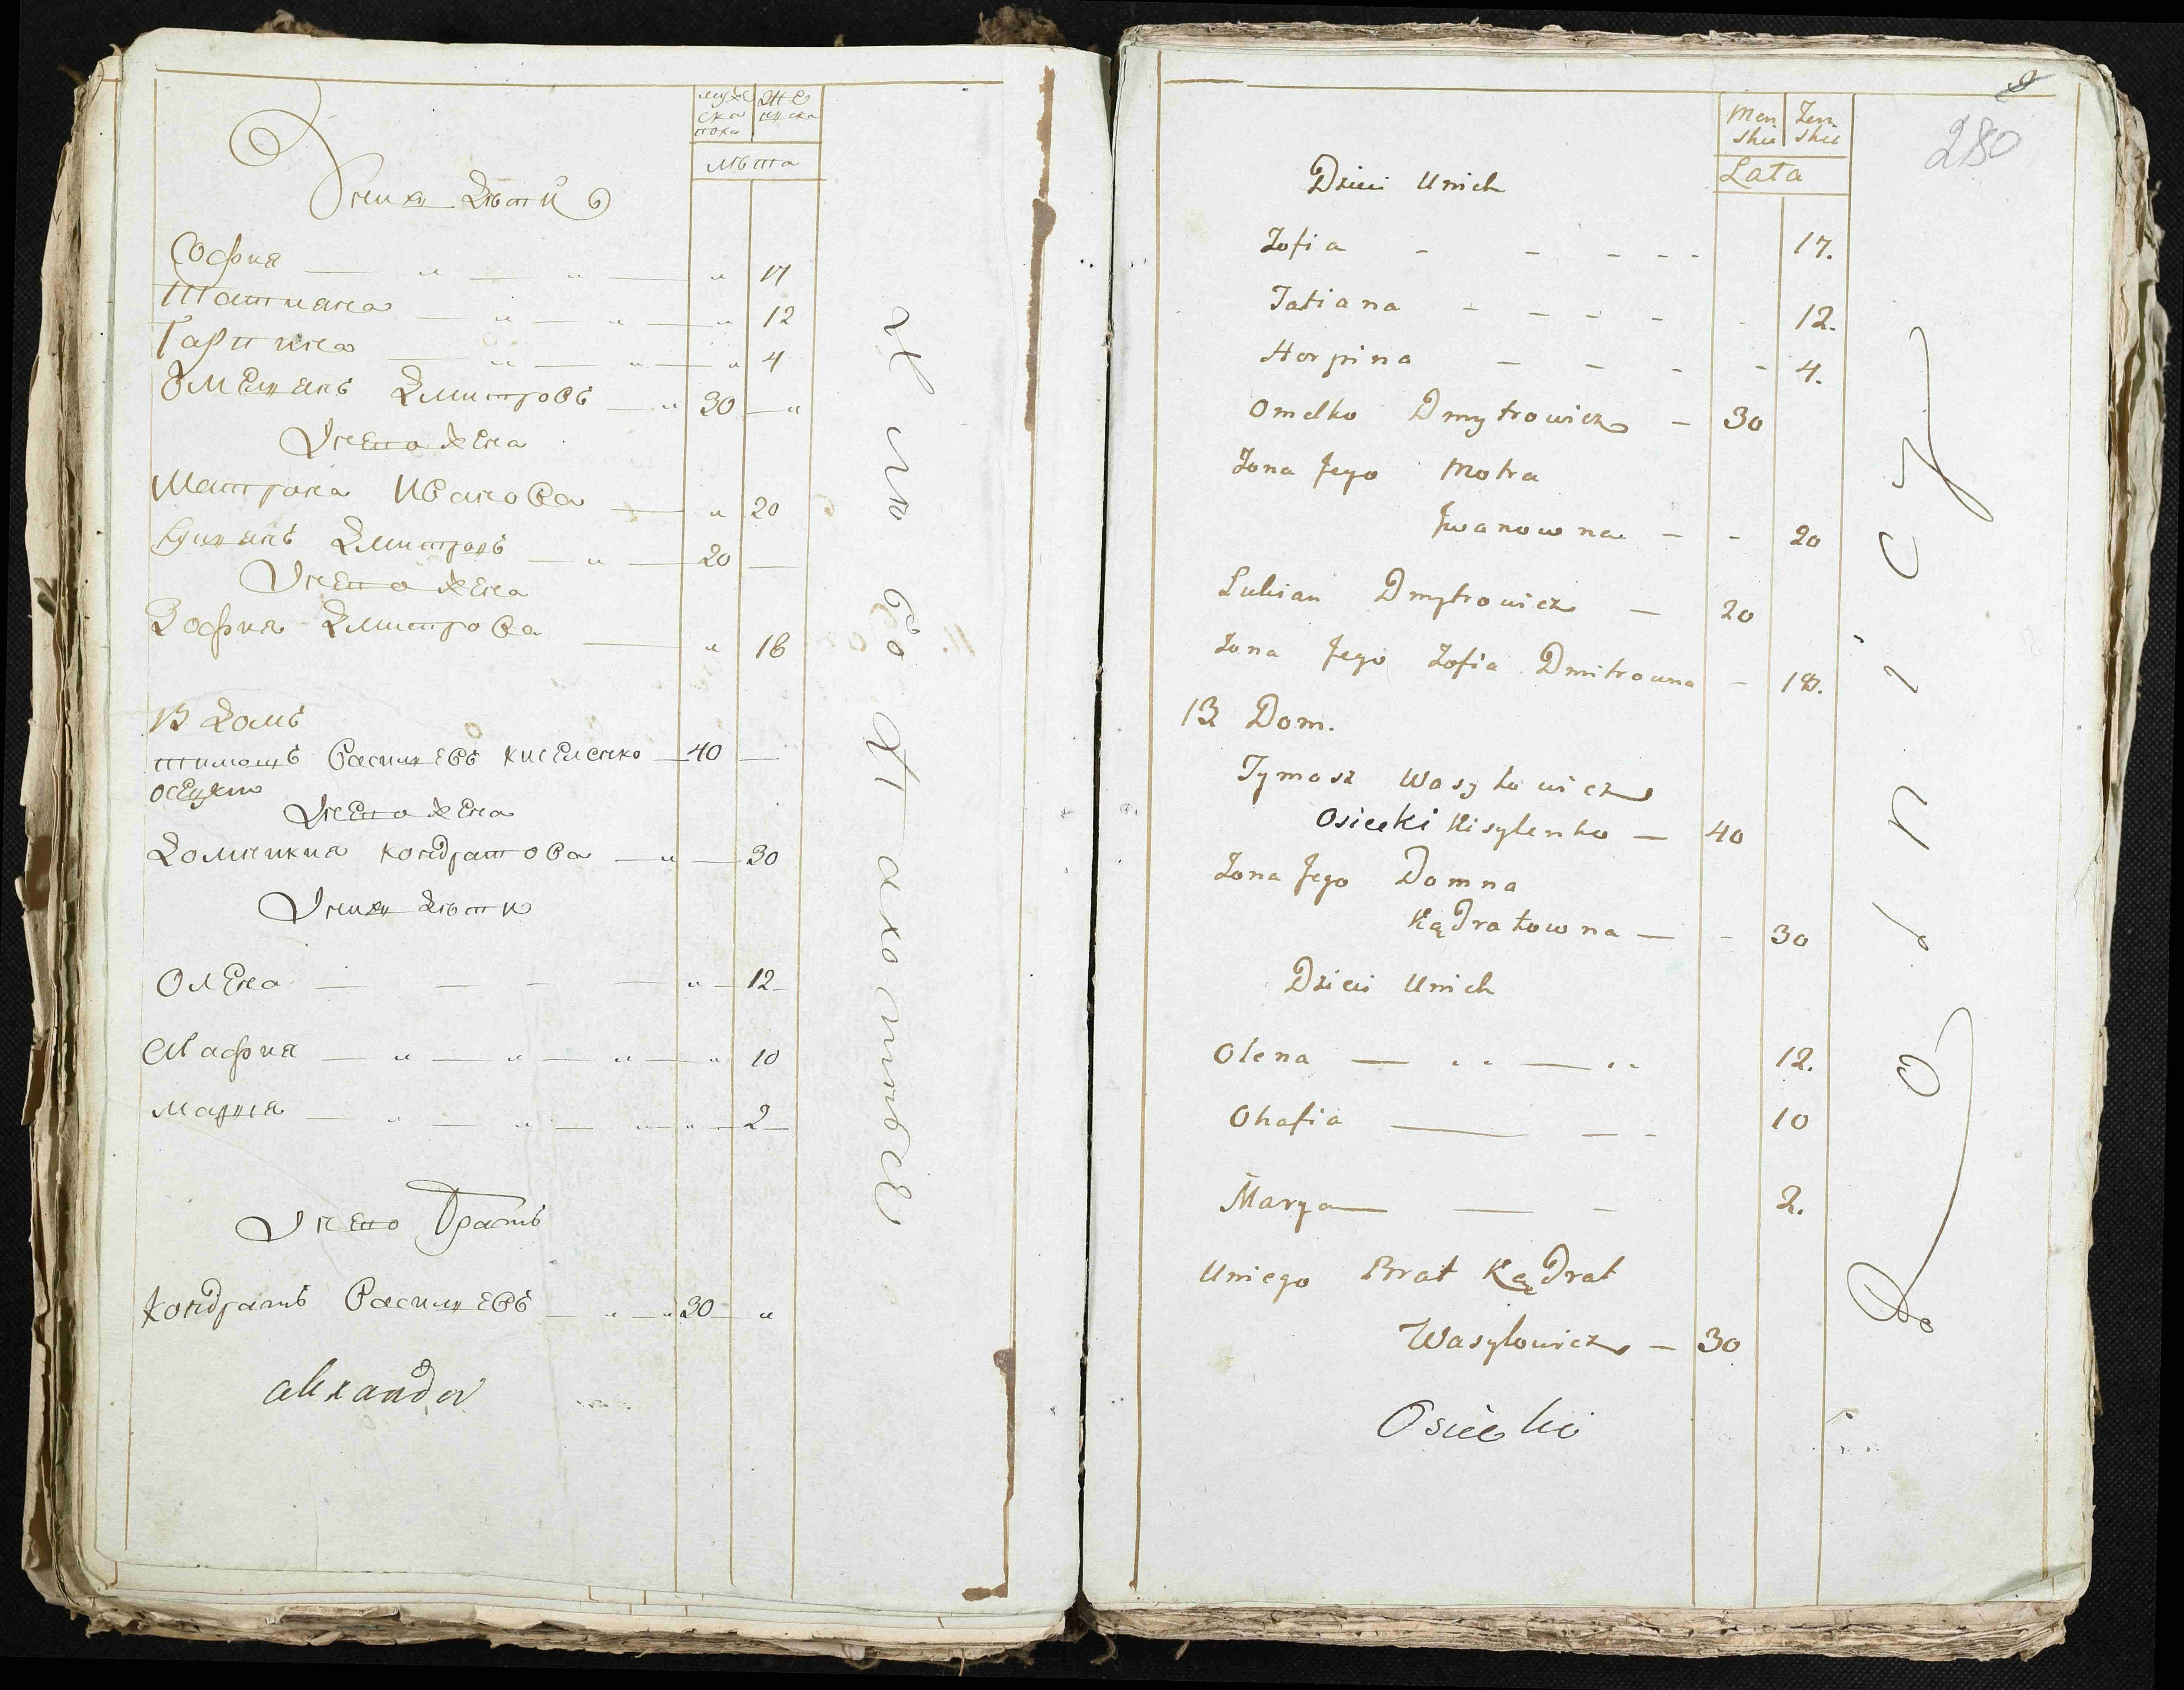 муже
ска
пола
жен
ска
лѣта
У них дѣти
София — „ — „ — „ 17
Татияна — „ — „ — „ 12
Гарпина — „ — „ — „ 4
Омелянъ Дмитровъ — „ 30 — „
У него жена
Матрона Иванова — „ 20
Дмитровъ — „ — 20 —
У него жена
Зофия Дмитрова — „ 18
13 домъ
тимошъ Василевъ киселенко — 40 —
осецки
У него жена
Домникия кондратова — „ — 30
У них дѣти
Олена — — — — „ — 12
Агафия — „ — „ — „ — „ 10
Мария — „ — „ — „ „ — 2 —
У него братъ
кондратъ Василевъ — „ — „ 30 — „
alexander
Men
skie
Zen
skie
280
Lata
Dzieci Unich
Zofia - - - - - 17.
Tatiana - - - - - 12.
Horpina - - - - 4.
Omelko Dmytrowicz - 30
Zona Jego Motra
Jwanowna - - 20
Lukian Dmytrowicz — 20
Zona Jego Zofia Dmitrowna - 18.
13 Dom.
Tymosz Wasylowicz
Osiecki Kisylenko — 40
Zona Jego Domna
Kądratowna — - 30
Dzieci Unich
Olena — .. — .. 12.
Ohafia — - - 10
Marya — — - 2.
Uniego Brat Kądrat
Wasylowicz — 30
Osiecki
Rolnicy